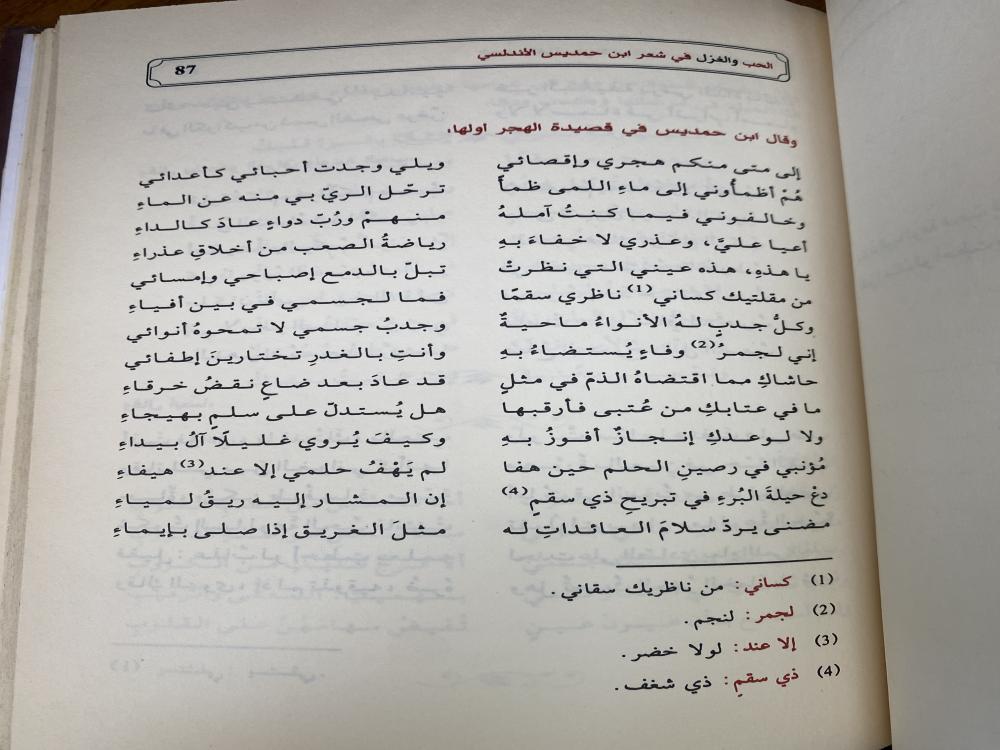 الحب والغزل في شعر ابن حمديس الأندلسي 87
وقال ابن حمديس في قصيدة الهجر أولها:
إلى متى منكم هجري وإقصائي ويلي وجدت أحبائي كأعدائي
هُمْ أظمأوني إلى ماءِ اللمى ظمأً ترحّل الريّ بي منه عن الماءِ
وخالفوني فيما كنتُ آملهُ منهمْ ورُبّ دواءٍ عادَ كالداءِ
أعيا عليَّ، وعذري لا خفاءَ بهِ رياضةُ الصعب من أخلاقِ عذراءِ
يا هذهِ، هذه عيني التي نظرتْ تبلّ بالدمع إصباحي وإمسائي
من مقلتيك كساني(1) ناظري سقمًا فما لجسمي في بين أفياءِ
وكلُّ جدبٍ لهُ الأنواءُ ماحيةٌ وجدبُ جسمي لا تمحوهُ أنوائي
إني لجمرُ(2) وفاءٍ يُستضاءُ بهِ وأنتِ بالغدرِ تختارينَ إطفائي
حاشاكِ مما اقتضاهُ الذمّ في مثلٍ قد عادَ بعد ضاعٍ نقضُ خرقاءِ
ما في عتابكِ من عُتبى فأرقبها هل يُستدلّ على سلمٍ بهيجاءِ
ولا لوعدكِ إنجازٌ أفوزُ بهِ وكيفَ يُروي غليلًا آلُ بيداءِ
مُؤنبي في رصينِ الحلم حين هفا لم يَهْفُ حلمي إلا عند(3) هيفاءِ
دعْ حيلةَ البُرءِ في تبريحِ ذي سقمٍ(4) إن المشار إليه ريقُ لمياءِ
مضنى يردّ سلامَ العائداتِ له مثلَ الغريق إذا صلى بإيماءِ
(1) كساني: من ناظريك سقاني.
(2) لجمر: لنجم.
(3) إلا عند: لولا خضر.
(4) ذي سقمٍ: ذي شغف.